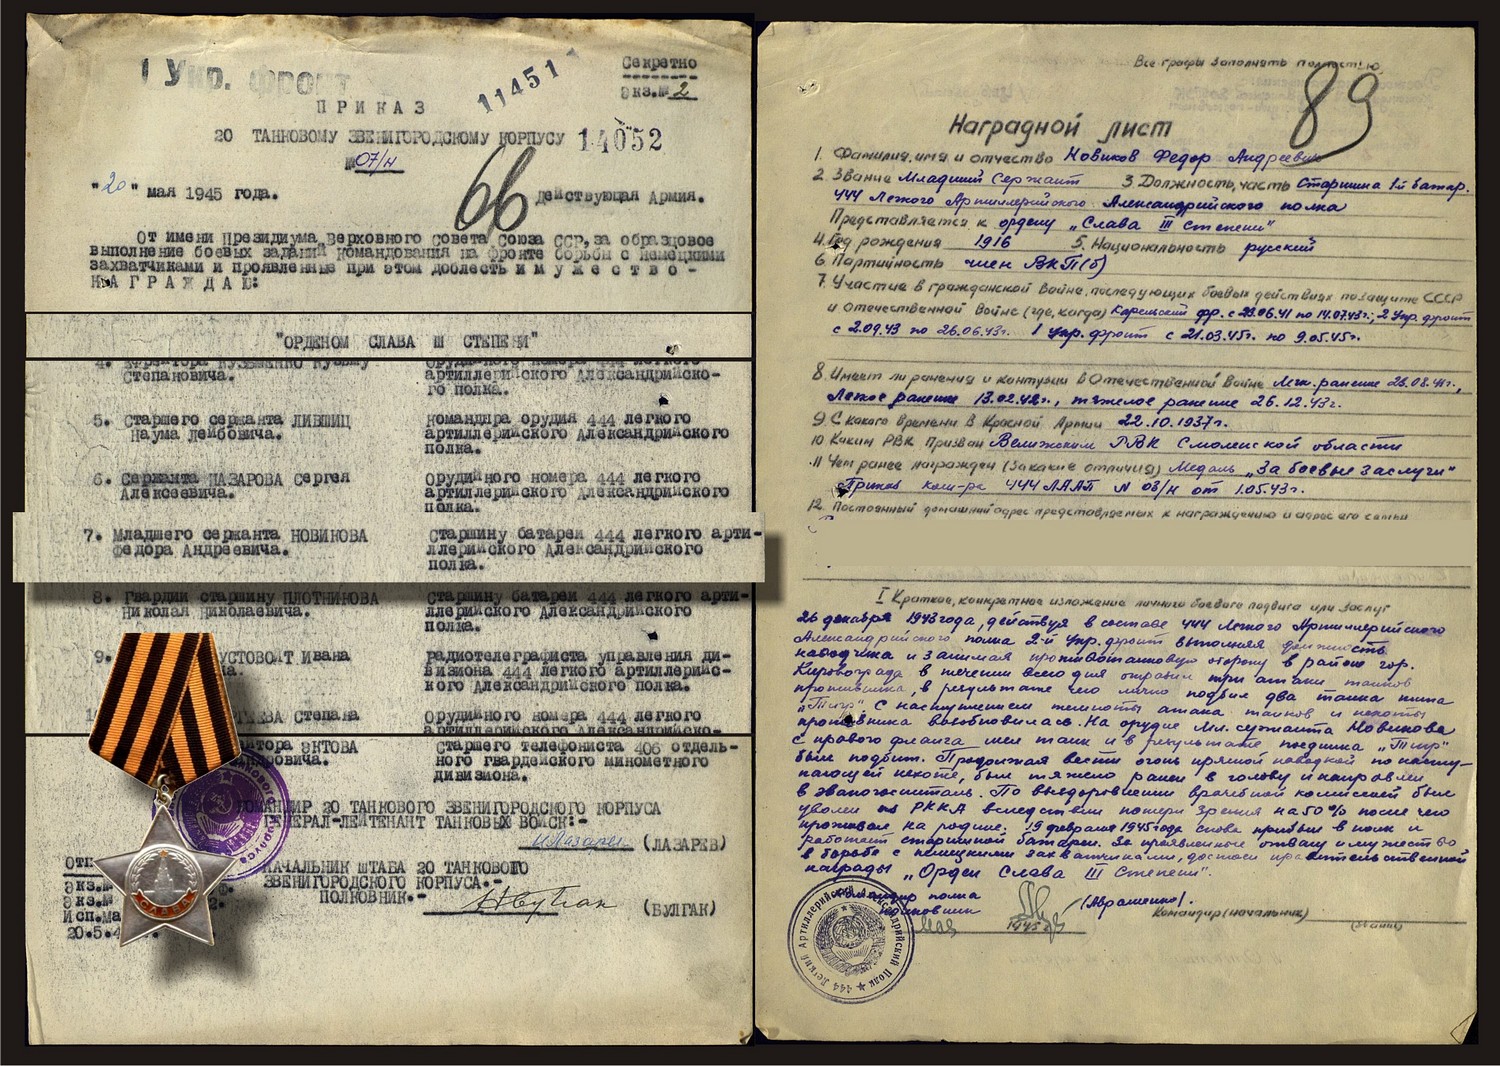 1 Укр. фронт
11451
Секретно
Экз.№ 2
ПРИКАЗ
20 ТАНКОВОМУ ЗВЕНИГОРОДСКОМУ КОРПУСУ 14052
№ 07/н
66
"20" мая 1945 года. Действующая Армия.
От имени Президиума Верховного Совета Союза ССР, за образцовое
выполнение боевых заданий командования на фронте борьбы с немецкими
захватчиками и проявленные при этом доблесть и мужество -
НАГРАЖДАЮ:
"ОРДЕНОМ СЛАВА Ш СТЕПЕНИ"
4. Ефрейтора КУЗЬМЕНКО Кузьму орудийного номера 444 легкого
Степановича. артиллерийского Александрийско-
го полка.
5. Старшего сержанта ЛИВШИЦ командира орудия 444 легкого
Наума Лейбовича. артиллерийского Александрийского
полка.
6. Сержанта НАЗАРОВА Сергея Орудийного номера 444 легкого
Алексеевича. артиллерийского Александрийского
полка.
7. Младшего сержанта НОВИКОВА Старшину батареи 444 легкого арти-
Федора Андреевича. ллерийского Александрийского
полка.
8. Гвардии старшину ПЛОТНИКОВА Старшину батареи 444 легкого арти-
Николая Николаевича. ллерийского Александрийского
полка.
9. УСТОВОЙТ Ивана радиотелеграфиста управления ди-
на. визиона 444 легкого артиллерийс-
кого Александрийского полка.
Степана Орудийного номера 444 легкого
артиллерийского Александрийского
тора ЭКТОВА Старшего телефониста 406 отдель-
ндровича. ного гвардейского минометного
дивизиона.
КОМАНДИР 20 ТАНКОВОГО ЗВЕНИГОРОДСКОГО КОРПУСА
ГЕНЕРАЛ-ЛЕЙТЕНАНТ ТАНКОВЫХ ВОЙСК:-
(ЛАЗАРЕВ)
НАЧАЛЬНИК ШТАБА 20 ТАНКОВОГО
ЗВЕНИГОРОДСКОГО КОРПУСА.-
ПОЛКОВНИК.- (БУЛГАК)
Отп
Экз.№
Экз.№ 2.
Исп.Ма
20.5.4
СЛАВА
Все графы заполнять полностью
89
Наградной лист
1. Фамилия, имя и отчество Новиков Федор Андреевич
2. Звание Младший Сержант 3. Должность, часть Старшина 1й батар.
444 Легкого Артиллерийского Александрийского полка
Представляется к ордену „Слава III степени"
4. Год рождения 1916 5. Национальность русский
6 Партийность член ВКП(б)
7. Участие в гражданской войне, последующих боевых действиях по защите СССР
и отечественной Войне (где, когда) Карельский фр. с 23.06.41 по 14.07.43г.; 2 Укр. фронт
с 2.09.43 по 26.06.43г. 1 Укр. фронт с 21.03.45г. по 9.05.45г.
8. Имеет ли ранения и контузии в Отечественной Войне Легк. ранение 23.08.41г.,
Легкое ранение 13.02.42г., тяжелое ранение 26.12.43г.
9. С какого времени в Красной Армии 22.10.1937г.
10 Каким РВК призван Велижским РВК Смоленской области
11 Чем ранее награжден (за какие отличия) Медаль „За боевые заслуги"
Приказ ком-ра 444 ЛААП N 03/н от 1.05.43г.
12. Постоянный домашний адрес представляемых к награждению и адрес его семьи
I Краткое, конкретное изложение личного боевого подвига или заслуг
26 декабря 1943 года, действуя в составе 444 Легкого Артиллерийского
Александрийского полка 2-й Укр. фронт выполняя должность
наводчика и занимая противотанковую оборону в районе гор.
Кировограда в течении всего дня отразил три атаки танков
противника, в результате чего лично подбил два танка типа
„Тигр". С наступлением темноты атака танков и пехоты
противника возобновилась. На орудие Мл. сержанта Новикова
с правого фланга шел танк и в результате поединка „Тигр"
был подбит. Продолжая вести огонь прямой наводкой по насту-
пающей пехоте, был тяжело ранен в голову и направлен
в эвакогоспиталь. По выздоровлении врачебной комиссией был
уволен из РККА вследствии потери зрения на 50% после чего
проживал на родине. 19 февраля 1945 года снова прибыл в полк и
работает старшиной батареи. За проявленные отвагу и мужество
в борьбе с немецкими захватчиками, достоин правительственной
награды „Орден Слава III Степени".
Командир полка
Полковник (Аврашенко).
Командир (начальник)
мая 1945г.
(звание)
444 Легкий Артиллерийский Александрийский Полк